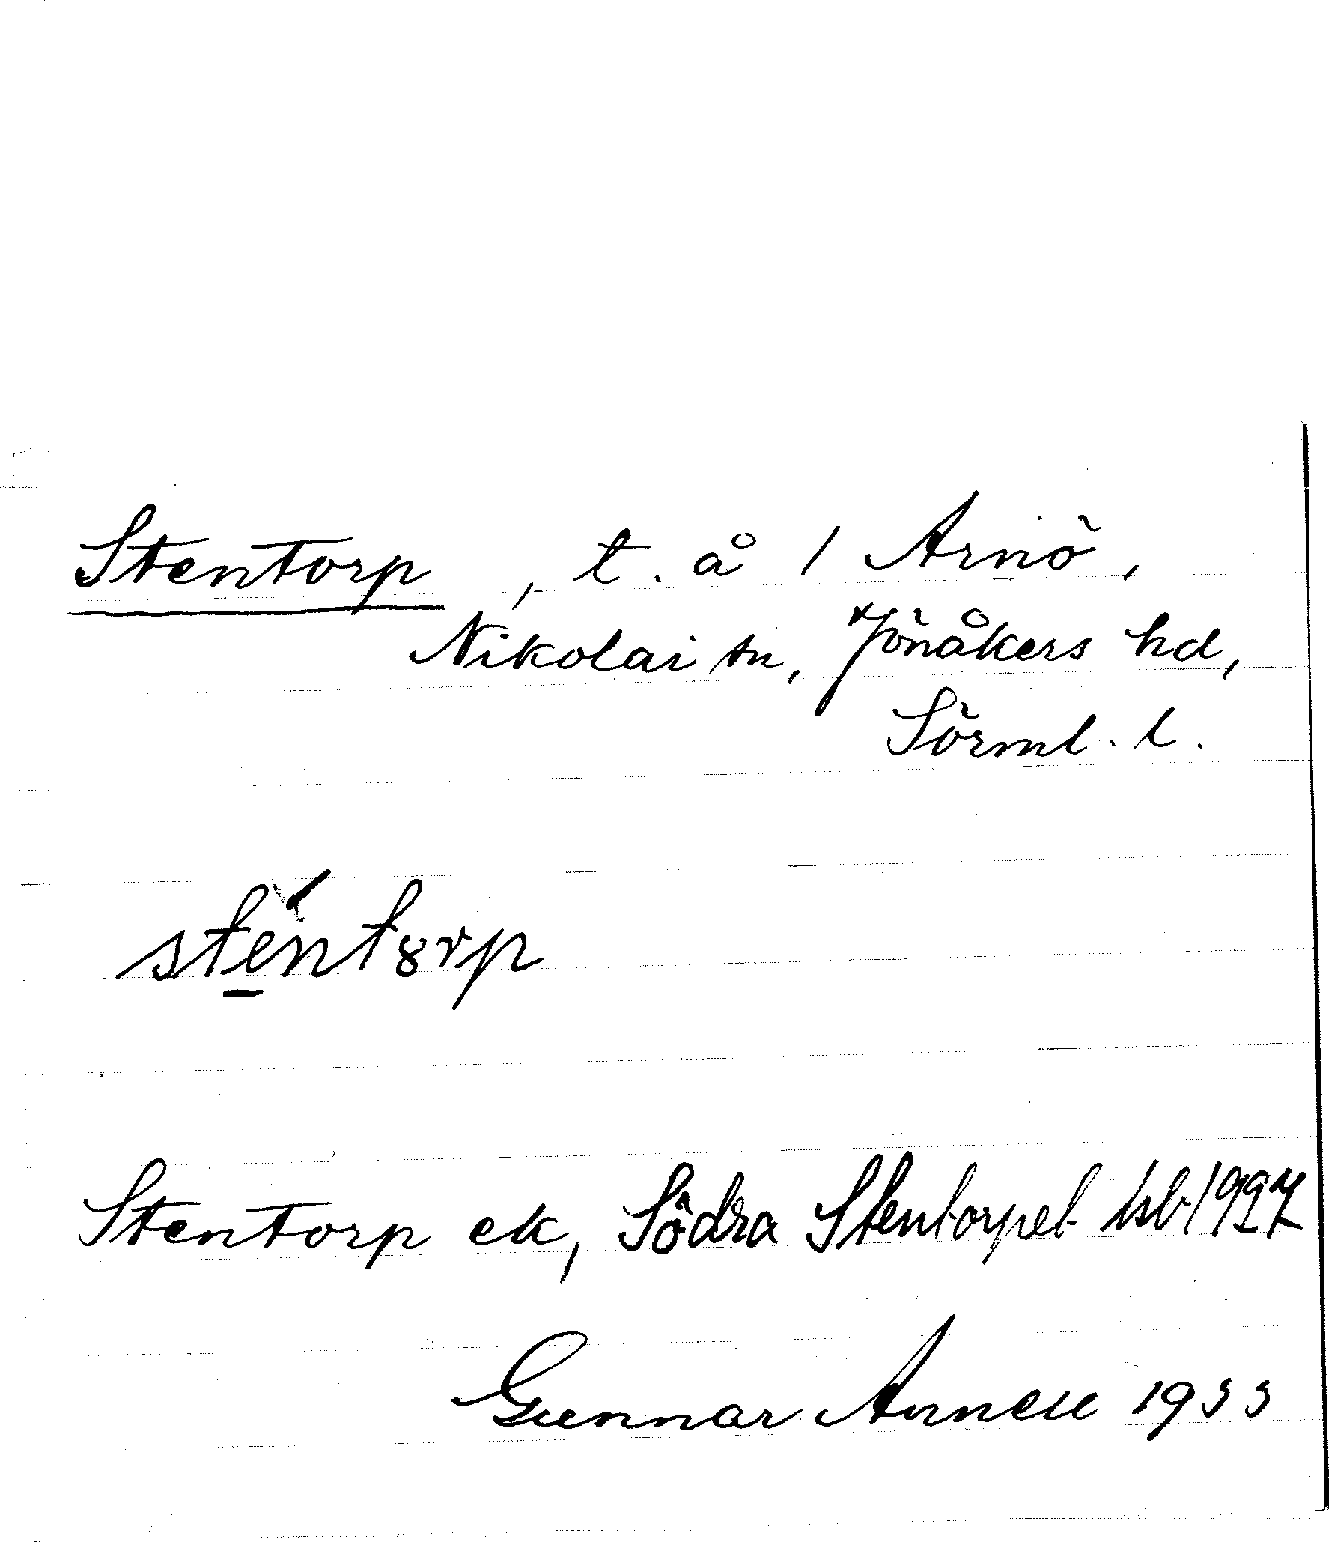 Stentorp, t. å 1 Arnö,
Nikolai sn, Jönåkers hd,
Sörml. l.
sténtȣrp
Stentorp ek, Södra Stentorpet hsb 1927
Gunnar Annell 1933